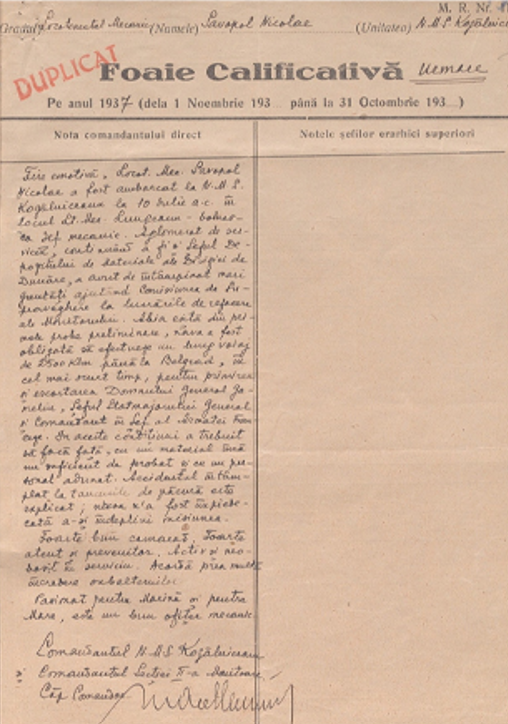 M. R. Nr.
Gradul Locotenentul Mecanic (Numele) Pavopol Nicolae (Unitatea) N.M.S. Kogălniceanu
DUPLICAT
Foaie Calificativă Urmare
Pe anul 1937 (dela 1 Noembrie 193... până la 31 Octombrie 193...)
Nota comandantului direct
Notele șefilor erarhici superiori
Fire emotivă, Locot. Mec. Pavopol
Nicolae a fost ambarcat la N.M.S.
Kogălniceanu la 10 Iulie a.c. în
locul Lt. Mec. Lungeanu - bolnav
ca Șef mecanic. Aglomerat de ser-
viciu, continuând a fi și Șeful De-
pozitului de materiale al Diviziei de
Dunăre, a avut de întâmpinat mari
greutăți ajutând Comisiunea de Su-
praveghere la lucrările de refacere
ale Monitorului. Abia eșită din pri-
mele probe preliminare, nava a fost
obligată să efectueze un lung voiaj
de 2500 Klm. până la Belgrad, în
cel mai scurt timp, pentru primirea
și escortarea Domnului General Ga-
melin, Șeful Statmajorului General
și Comandant în Șef al Armatei Fran-
ceze. În aceste condițiuni a trebuit
să facă față, cu un material încă
insuficient de probat și cu un per-
sonal adunat. Accidentul întâm-
plat la tancurile de păcură este
explicat; nava n'a fost împiede-
cată a-și îndeplini misiunea.
Foarte bun camarad. Foarte
atent și prevenitor. Activ și neo-
bosit în serviciu. Acordă prea multă
încredere subalternilor.
Pasionat pentru Marină și pentru
Mare, este un bun ofițer mecanic.
Comandantul N.M.S. Kogălniceanu
și Comandantul Secției II-a Monitoare
Căp. Comandor